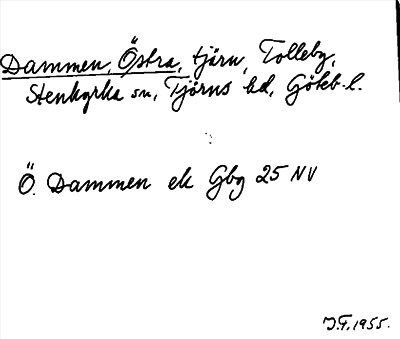 Dammen, Östra, tjärn, Tolleby,
Stenkyrka sn, Tjörns hd, Göteb. l.
Ö. Dammen ek Gbg 25 NV
J.F. 1955.